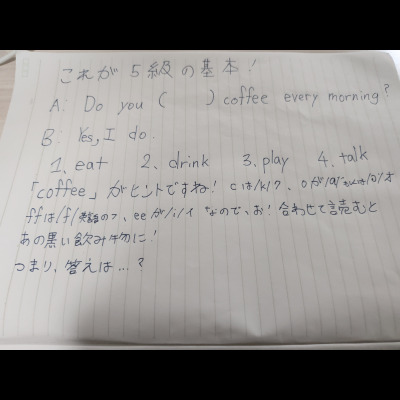 これが5級の基本!
A: Do you ( ) coffee every morning?
B: Yes, I do.
1. eat 2. drink 3. play 4. talk
「coffee」がヒントですね! cは/k/ク、oが/ɑ/または/ɔ/オ
ffは/f/英語のフ、eeが/i/イ なので、お! 合わせて読むと
あの黒い飲み物に!
つまり、答えは...?